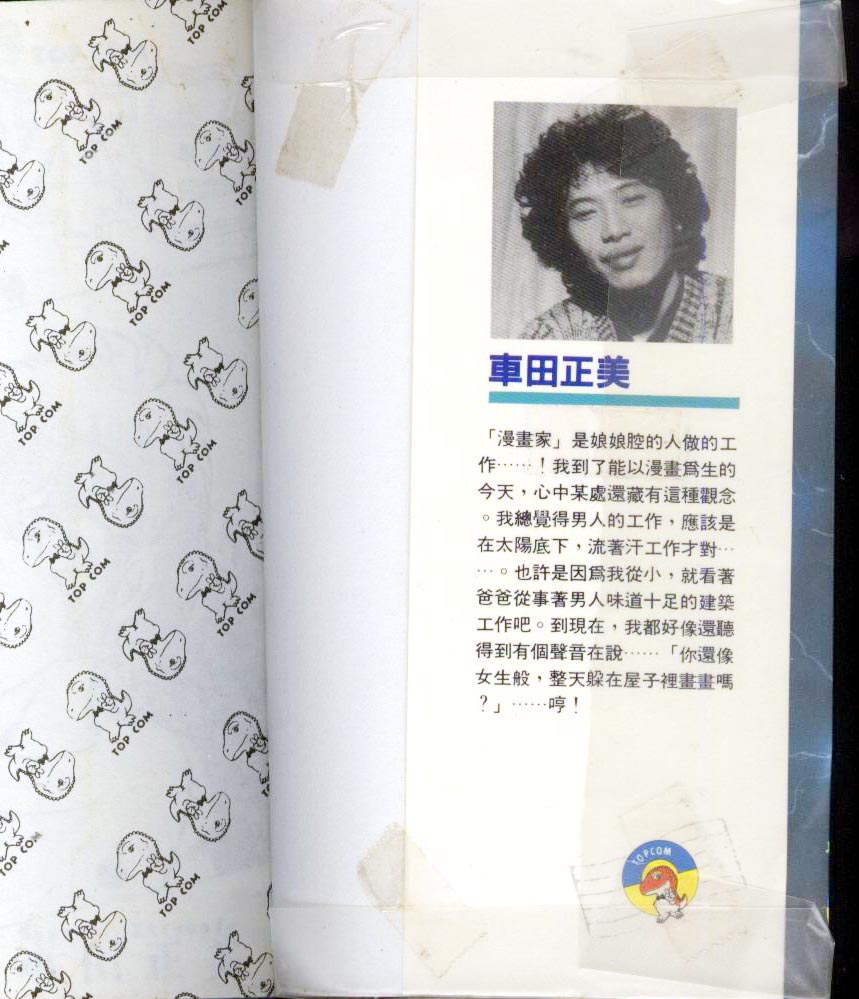 TOP COM
TOP COM
TOP COM
TOP COM
TOP COM
TOP COM
TOP COM
TOP COM
TOP COM
TOP COM
TOP COM
車田正美
「漫畫家」是娘娘腔的人做的工
作⋯⋯!我到了能以漫畫爲生的
今天,心中某處還藏有這種觀念
。我總覺得男人的工作,應該是
在太陽底下,流著汗工作才對⋯
⋯。也許是因爲我從小,就看著
爸爸從事著男人味道十足的建築
工作吧。到現在,我都好像還聽
得到有個聲音在說⋯⋯「你還像
女生般,整天躲在屋子裡畫畫嗎
?」⋯⋯哼!
TOPCOM